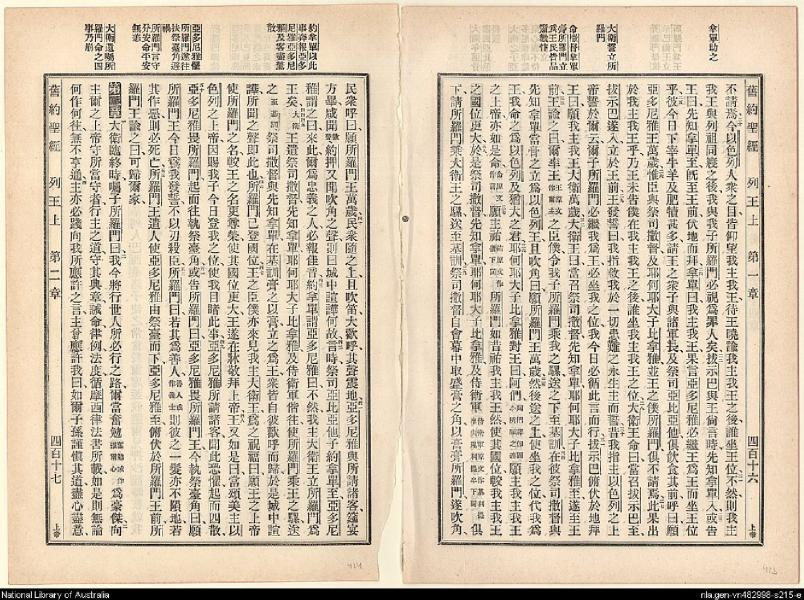 拿單助之
大衛誓立所
羅門
命祭司拿單
膏所羅門立
爲王民皆品
舊約聖經 列王上 第一章 四百十六 上帝
不請焉今以色列人衆之目皆仰望我主我王待王曉諭我主我王之後誰坐王位不然則我主
我王與列祖同寢之後我與我子所羅門必視爲罪人矣拔示巴與王尙言時先知拿單入或告
王曰先知拿單至旣至王前伏地而拜拿單曰我主我王果言亞多尼雅必繼王爲王而坐王位
乎彼今日下宰牛羊及肥犢甚多請王之衆子與諸軍長及祭司亞比亞他俱飲食其前呼曰願
亞多尼雅王萬歲惟臣與祭司撒督及耶何耶大子比拿雅並王之僕所羅門俱不請焉此果出
我主我王乎乃王未告僕在我主我王之後誰坐我主我王之位大衛王命曰當召拔示巴至
拔示巴遂入立於王前王發誓曰我指救我於一切患難之永生主而誓昔我指主以色列之上
帝誓於爾云爾子所羅門必繼我爲王必坐我之位我今日必循此言而行拔示巴俯伏於地拜
王曰願我主我王大衛萬歲大衛王曰當召祭司撒督先知拿單耶何耶大子比拿雅至遂至王
前王諭之曰爾率王之臣僕令我子所羅門乘我之騾送之下至基訓在彼祭司撒督與
先知拿單當膏之立爲以色列王且吹角曰願所羅門王萬歲然後送之上使坐我之位代我爲
王我命之爲以色列及猶大之君耶何耶大子比拿雅對王曰阿們願主我主我王
之上帝亦如是命願主祐所羅門如昔祐我主我王然使其國位較我主我王
之國位更大於是祭司撒督先知拿單耶何耶大子比拿雅及侍衛軍俱
下請所羅門乘大衛王之騾送至基訓祭司撒督自會幕中取盛膏之角以膏膏所羅門遂吹角
約拿單以此
事奔報亞多
尼雅亞多尼
雅及客悉驚
散
亞多尼雅懼
所羅門遂往
扶祭臺角避
禍
所羅門言守
分安命平安
無恙
大衛遺囑所
羅門命之四
事乃崩
民衆呼曰願所羅門王萬歲民衆隨之上且吹笛大歡呼其聲震地亞多尼雅與所請諸客筵宴
方畢咸聞約押又聞吹角之聲則曰城中諠譁何故言時祭司亞比亞他子約拿單至亞多尼
雅謂之曰來此爾爲忠義之人必報佳音約拿單謂亞多尼雅曰不然我主大衛王立所羅門爲
王矣王遣祭司撒督先知拿單耶何耶大子比拿雅及侍衛軍偕往使所羅門乘王之騾送
之祭司撒督與先知拿單在基訓膏之以膏立之爲王衆皆自彼歡呼而歸於是城中諠
譁所聞之聲即此也所羅門已登國位王之臣僕亦來見我主大衛王爲之祝福曰願王之上帝
使所羅門之名較王之名更尊榮使其國位更大王遂在牀敬拜上帝王又如是曰當頌美主以
色列之上帝今日賜我子今日登我之位使我目睹此事亞多尼雅所請諸客聞此恐懼起而四散
亞多尼雅畏所羅門起而往執祭臺角或告所羅門曰亞多尼雅畏所羅門王今執祭臺角曰願
所羅門王今日向我發誓不以刃殺臣所羅門曰若其爲善人則彼之一髮亦不隕地若
其作惡則必死亡所羅門王遣人使亞多尼雅由祭臺而下亞多尼雅至俯伏於所羅門王前所
羅門王諭之曰可歸爾家
第二章 大衛臨終時囑子所羅門曰我今將行世人所必行之路爾當奮勉爲豪傑向
主爾之上帝守所當守者行主之道守其典章誡命律例法度循摩西律法書所載如是則無論
何作何往無不亨通主亦必踐向我所應許之言主曾應許我曰如爾子孫謹愼其道盡心盡意
舊約聖經 列王上 第二章 四百十七 上帝
National Library of Australia
nla.gen-vn482998-s215-e